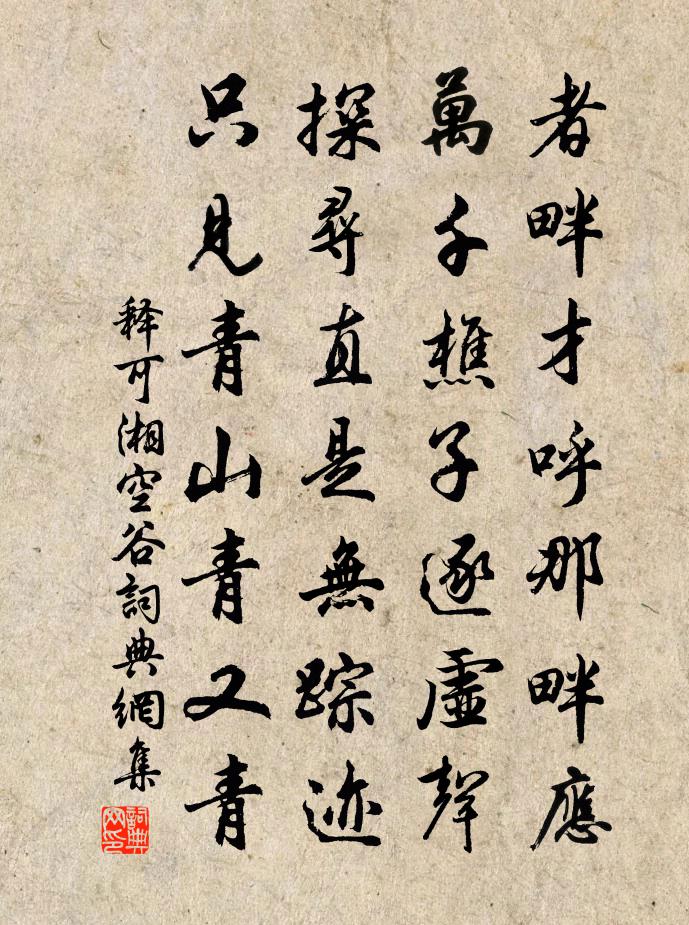 者畔才呼那畔應
萬千樵子逐虛聲
探尋直是無踪迹
只見青山青又青
釋可湘空谷詞典網集
詞典網印